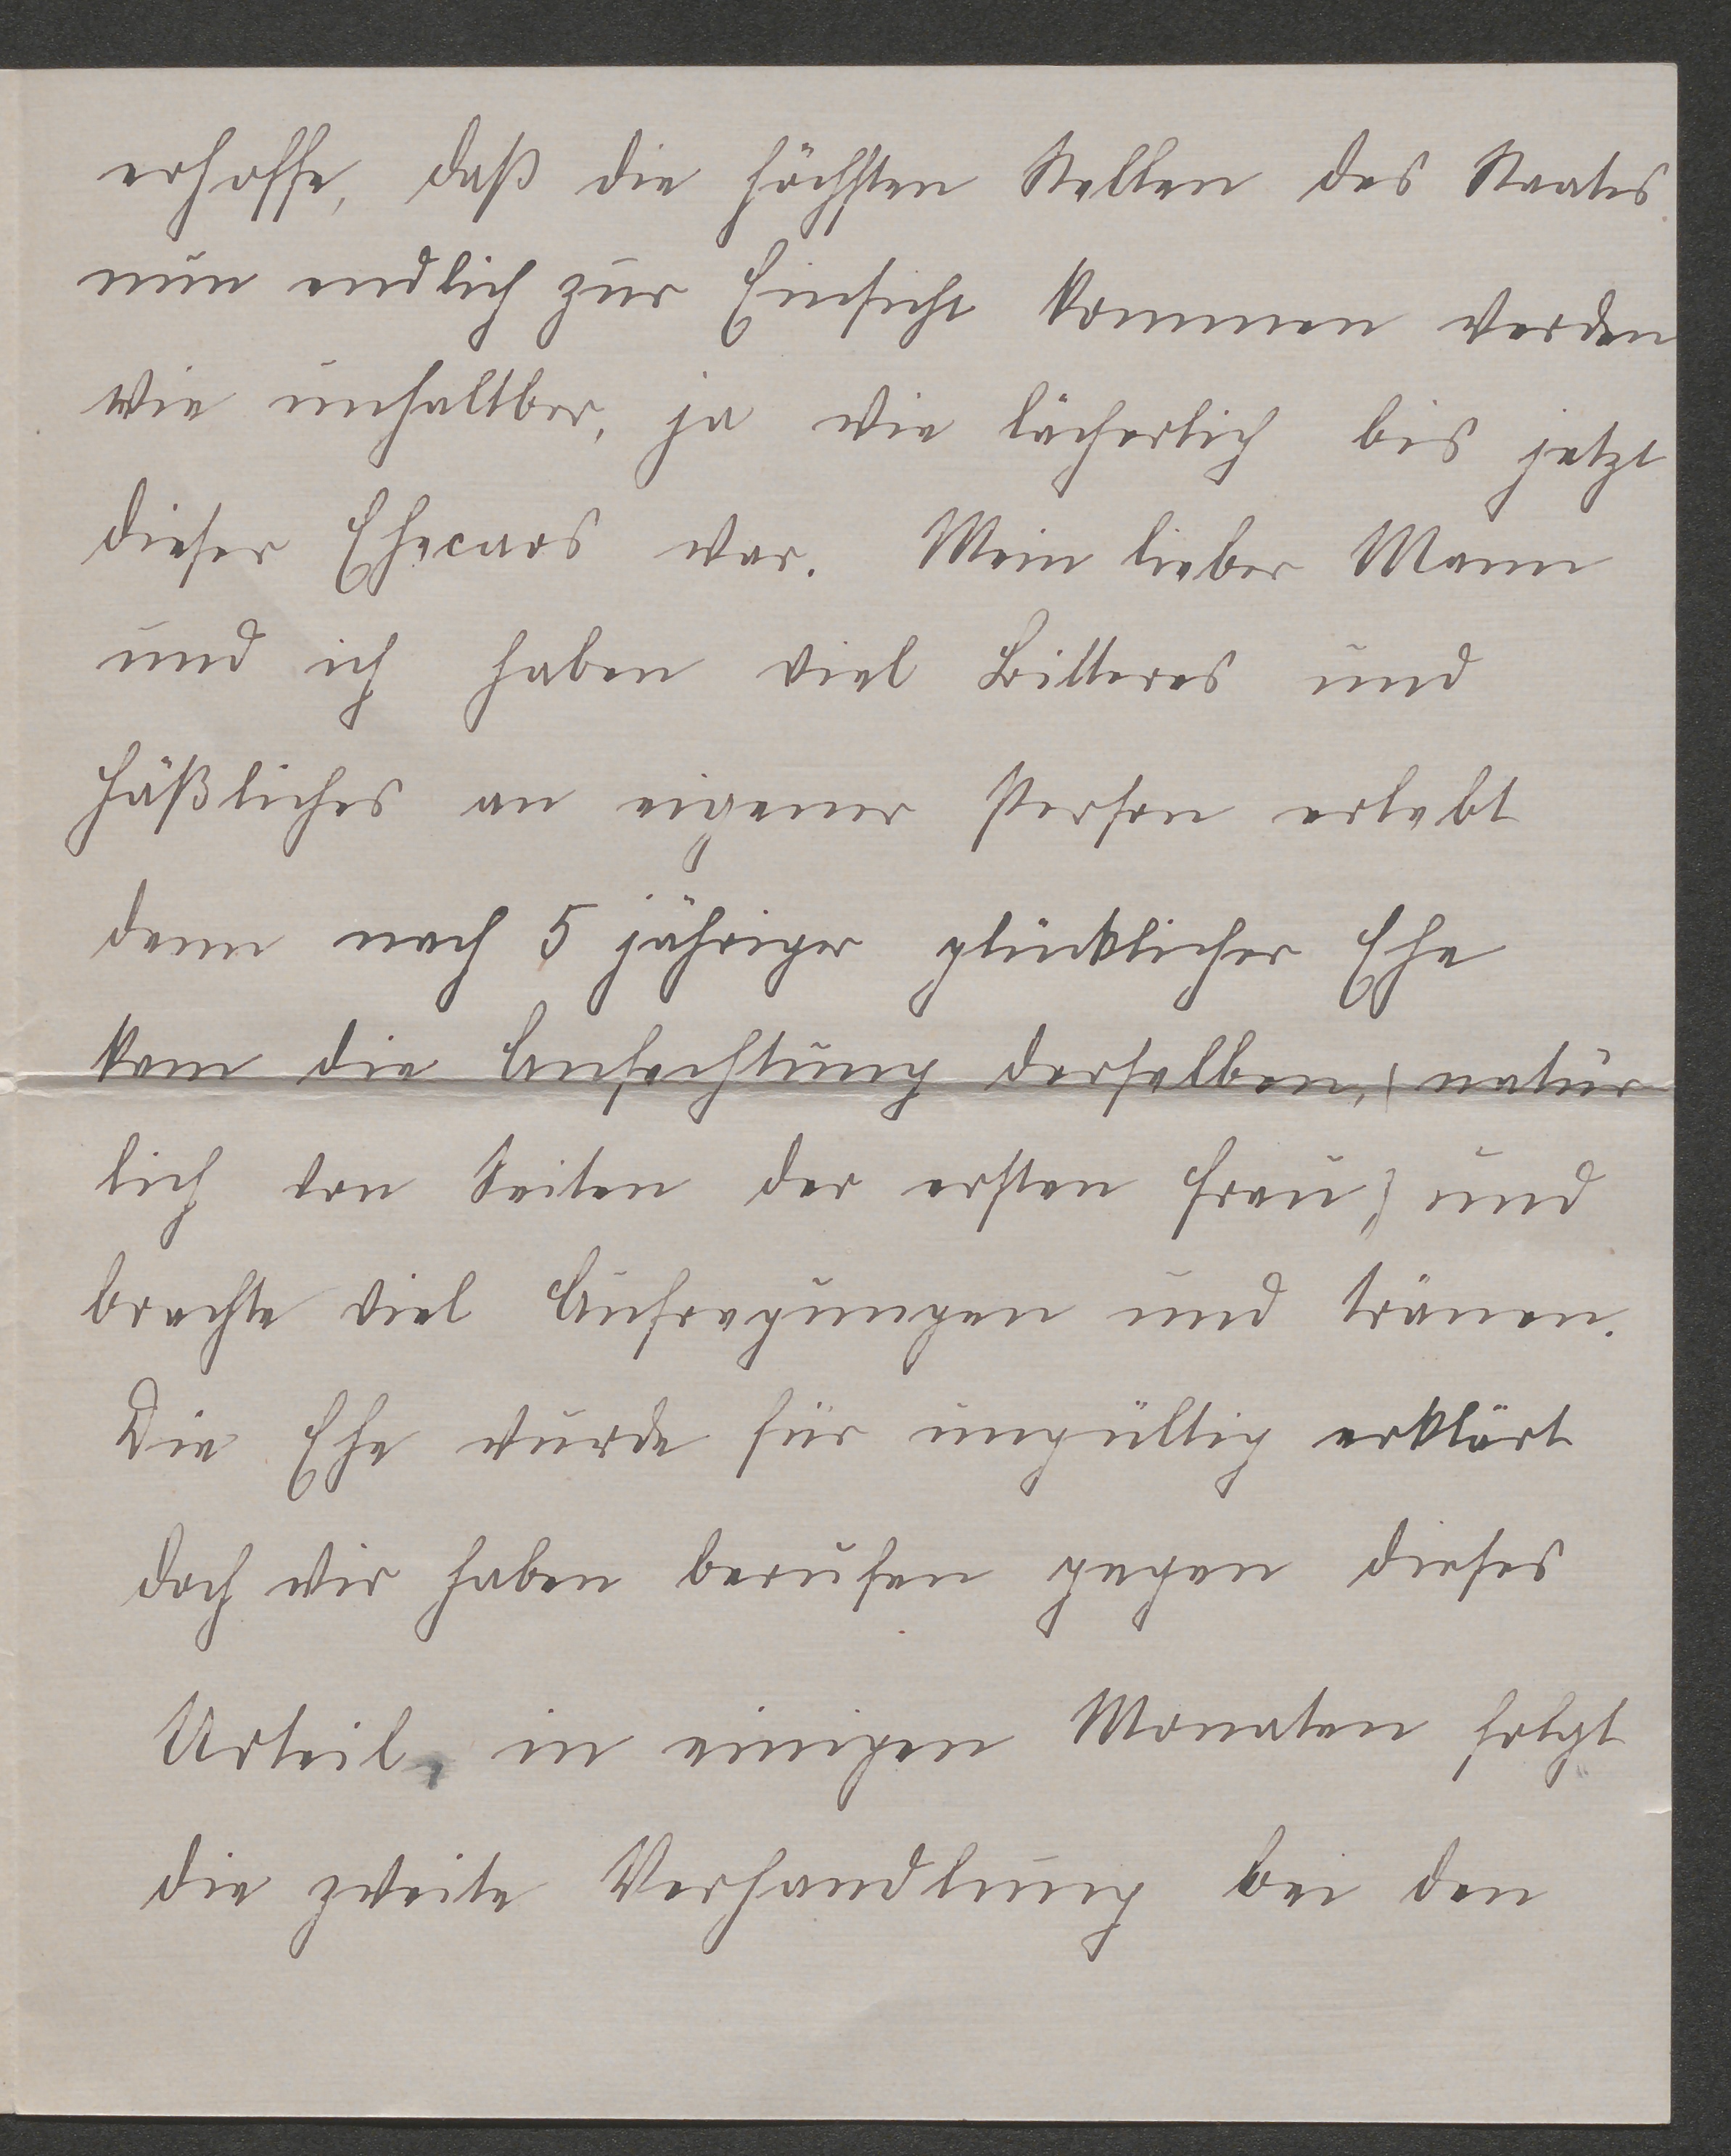 erhoffe, daß die höchsten Stellen des Staates
nun endlich zur Einsicht kommen werden
wie unhaltbar, ja wie lächerlich bis jetzt
dieser Ehecaos war. Mein lieber Mann
und ich haben viel Bitteres und
häßliches an eigener Person erlebt
denn nach 5 jähriger glücklicher Ehe
kam die Anfechtung derselben, (natür
lich von Seiten der ersten Frau) und
brachte viel Aufregungen und tränen.
Die Ehe wurde für ungültig erklärt
doch wir haben berufen gegen dieses
Urteil, in einigen Monaten folgt
die zweite Verhandlung bei den